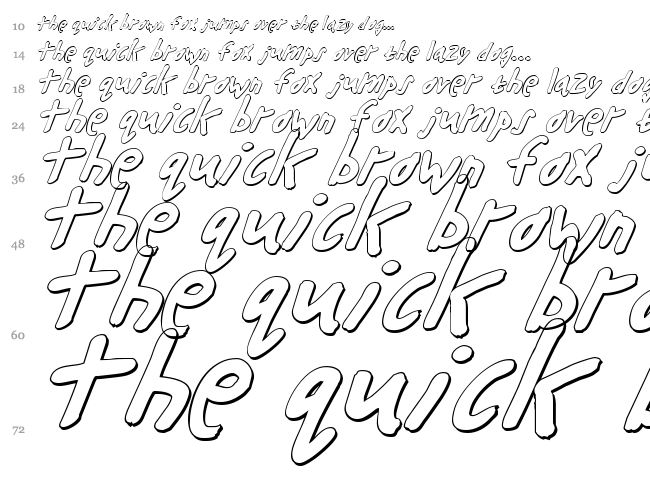 10 the quick brown fox jumps over the lazy dog...
14 the quick brown fox jumps over the lazy dog...
18 the quick brown fox jumps over the lazy dog
24 the quick brown fox jumps over t
36 the quick brown fox ju
48 the quick brown
60 the quick br
72 the quick b